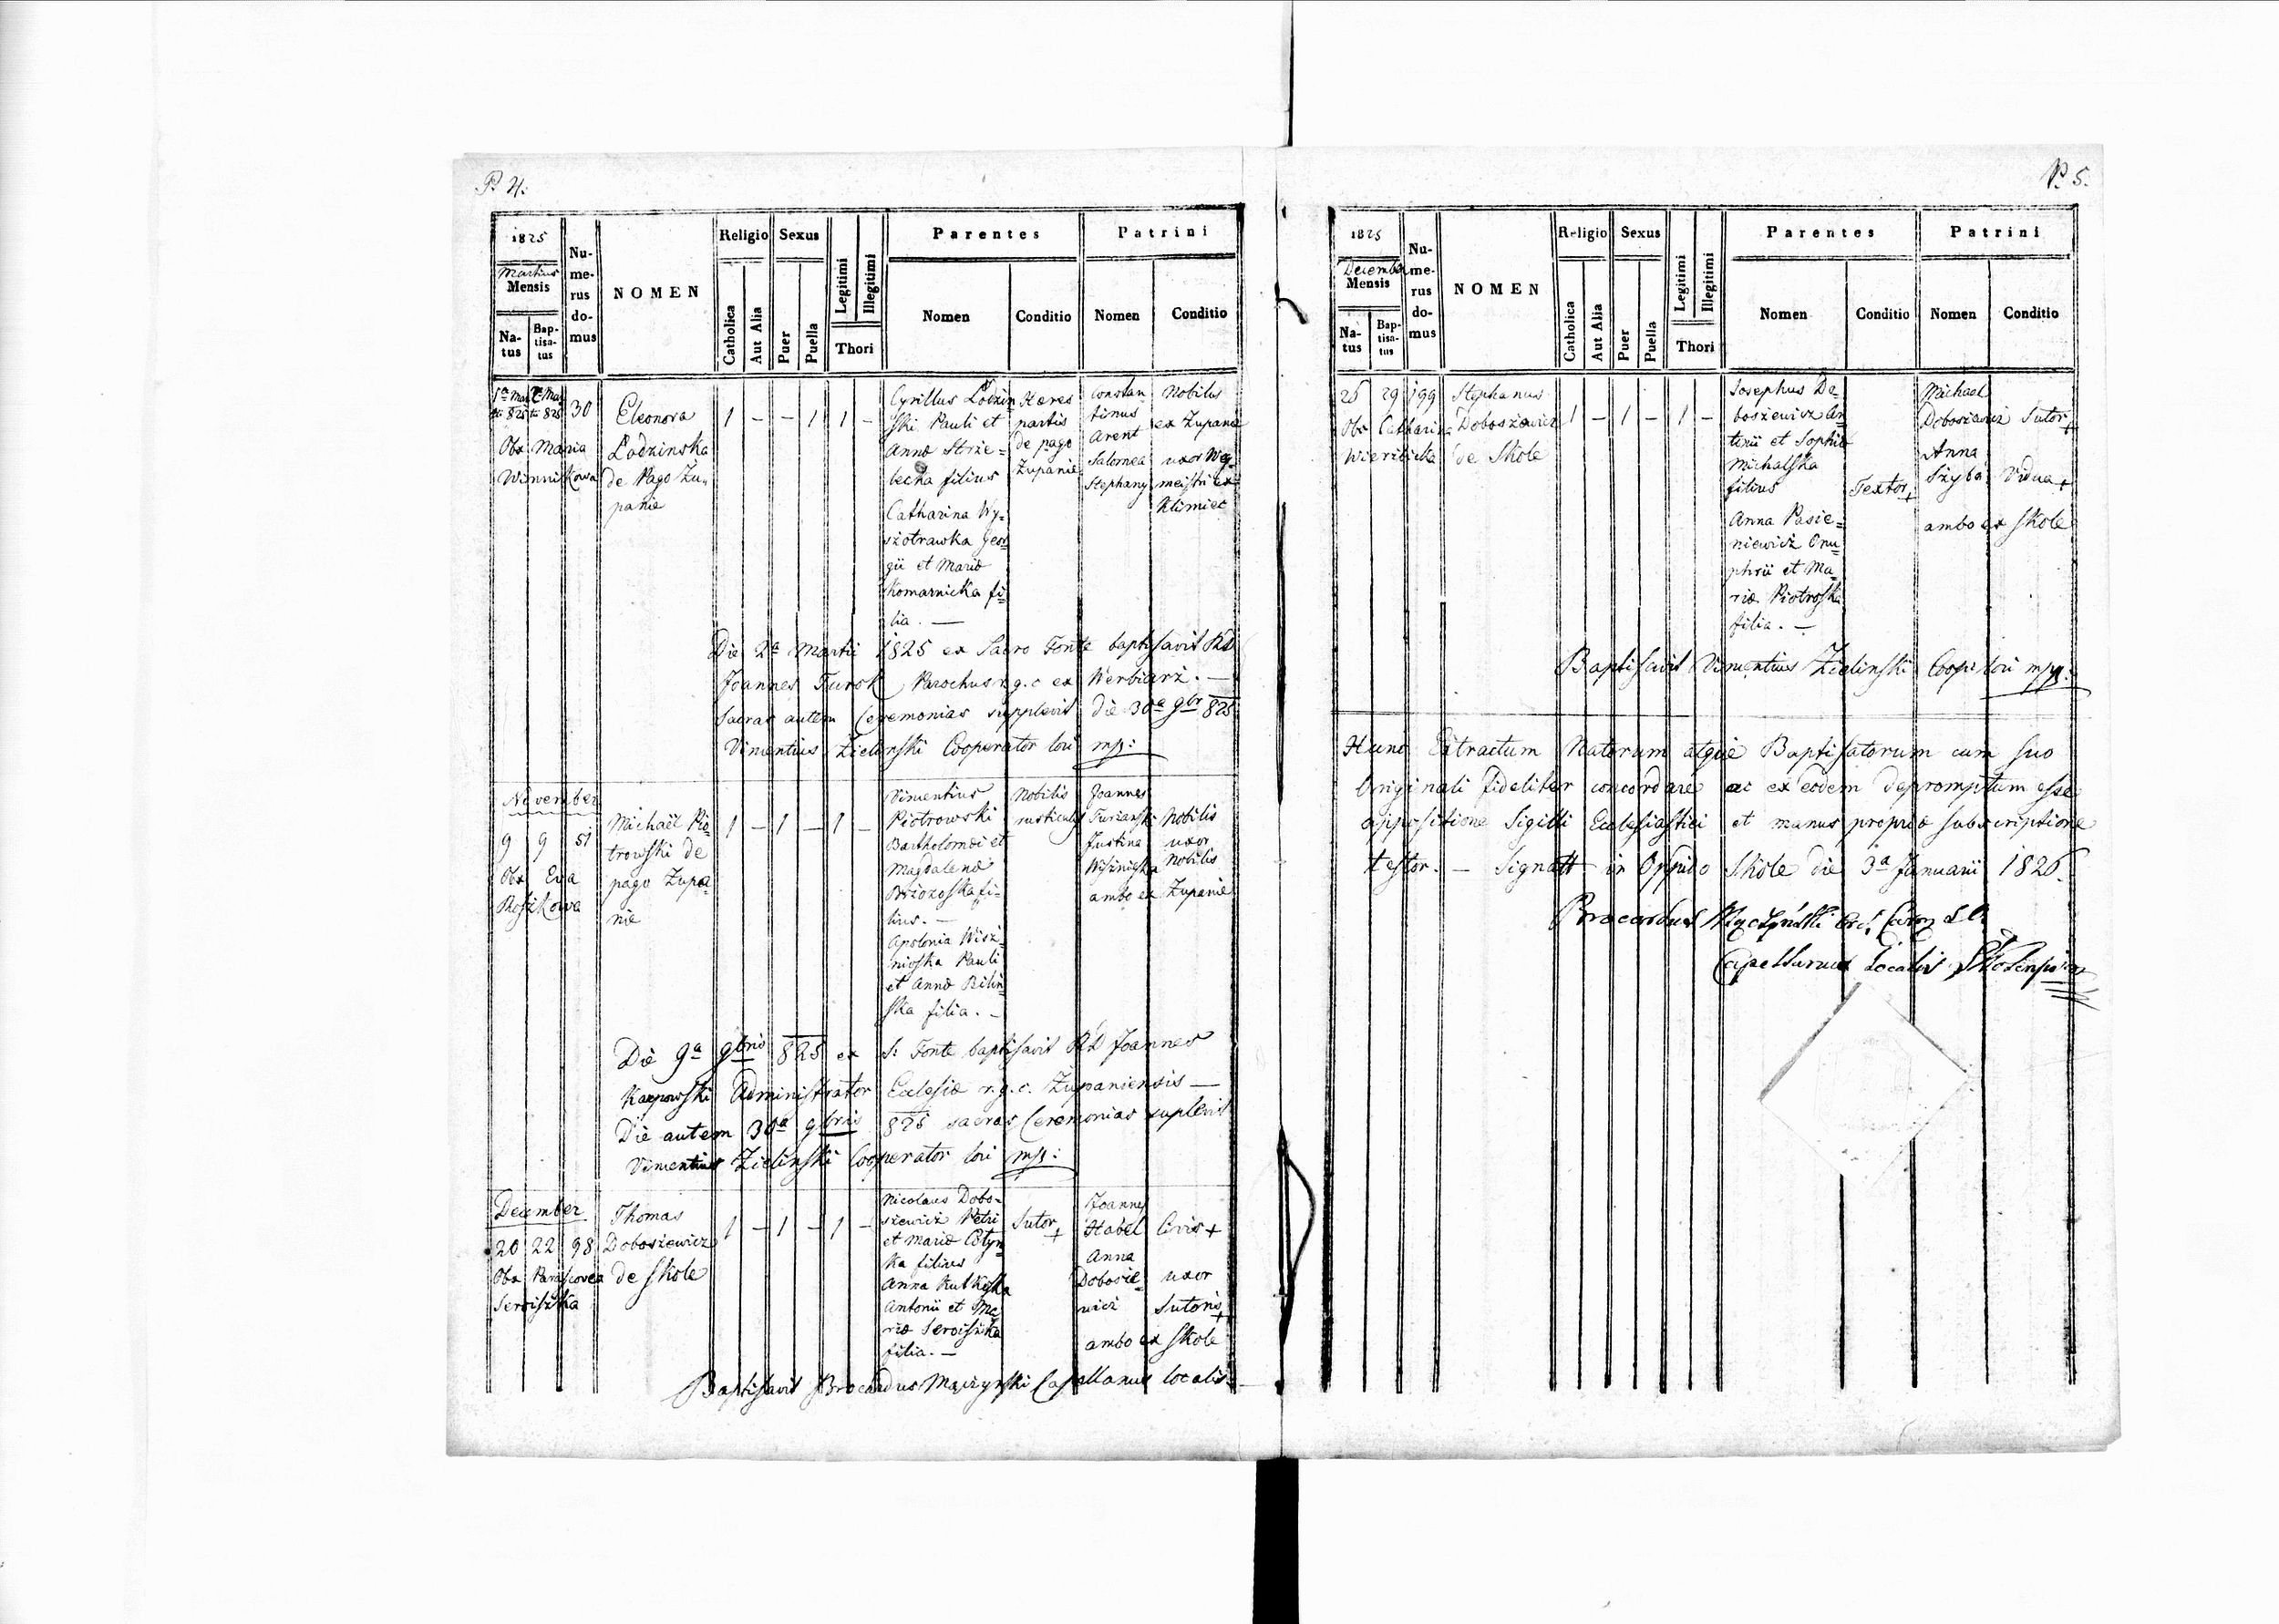 P. 4.
1825
Martius
Mensis
Na-
tus
Bap-
tisa-
tus
Nu-
me-
rus
do-
mus
NOMEN
Religio
Catholica
Aut Alia
Sexus
Puer
Puella
Legitimi
Illegitimi
Thori
Parentes
Nomen
Conditio
Patrini
Nomen
Conditio
30
Obx Maria
Winnikowa
Eleonora
Lodzinska
de Pago Zu-
panie
1 – – 1 1 –
Cyrillus Lodzin-
ski Pauli et
Annæ Strze-
lecka filius
Catharina Wy-
szotrawka Geor-
gii et Mariæ
Komarnicka fi-
lia. —
Hæres
partis
de pago
Zupanie
Constan-
tinus
Arent
Salomea
Stephany
Nobilis
ex Zupanie
uxor Weg-
meistri ex
Klimiec
Die 2a Martii 1825 ex Sacro Fonte baptisavit RD
Joannes Turok Parochus r.g.c ex Werbiarz. —
Sacras autem Ceremonias supplevit die 30a 9br 825
Vincentius Zielinski Cooperator loci mp:
November
9 9 51
Obx Eva
Roszkowa
Michaël Pio-
trowski de
pago Zupa-
nie
1 – 1 – 1 –
Vincentius
Piotrowski
Bartholomæi et
Magdalenæ
Brzozoska fi-
lius. —
Apolonia Wisz-
nioska Pauli
et Annæ Bilin-
ska filia. –
Nobilis
rusticus
Joannes
Turzanski
Justina
Wisznioska
ambo ex Zupanie
Nobilis
uxor
Nobilis
Die 9a 9bris 825 ex S: Fonte baptisavit RD Joannes
Karpowski Administrator Ecclesiæ r.g.c. Zupaniensis —
Die autem 30a 9bris 825 sacras Ceremonias suplevit
Vincentius Zielinski Cooperator loci mp:
December
20 22 98
Obx Parascovea
Seroiszka
Thomas
Doboszewicz
de Skole
1 – 1 – 1 –
Nicolaus Dobo-
szewicz Petri
et Mariæ Cotyn-
ka filius
Anna
Antonii et Ma-
riæ Seroiszka
filia. —
Sutor +
Joannes
Habel
Anna
Dobosze-
wicz
ambo ex Skole
Civis +
uxor
Sutoris +
Baptisavit Brocardus Mączyński Capellanus localis.
P. 5.
1825
December
Mensis
Na-
tus
Bap-
tisa-
tus
Nu-
me-
rus
do-
mus
NOMEN
Religio
Catholica
Aut Alia
Sexus
Puer
Puella
Legitimi
Illegitimi
Thori
Parentes
Nomen
Conditio
Patrini
Nomen
Conditio
25 29 199
Obx Catharina
Wierzbicka
Stephanus
Doboszewicz
de Skole
1 – 1 – 1 –
Josephus Do-
boszewicz An-
tonii et Sophiæ
Michalska
filius
Anna Pasie-
niewicz Onu-
phrii et Ma-
riæ Piotroska
filia. —
Textor +
Michael
Doboszewicz
Anna
Szyba
ambo ex Skole
Sutor +
Vidua +
Baptisavit Vincentius Zielinski Coop: loci mp:
Hunc Extractum Natorum atque Baptisatorum cum suo
Originali fideliter concordare ac ex eodem depromptum esse
appositione Sigilli Ecclesiastici et manus propriæ subscriptione
testor. — Signatt in Oppido Skole die 3a Januarii 1826.
Brocardus Mączyński
Capellanus Localis